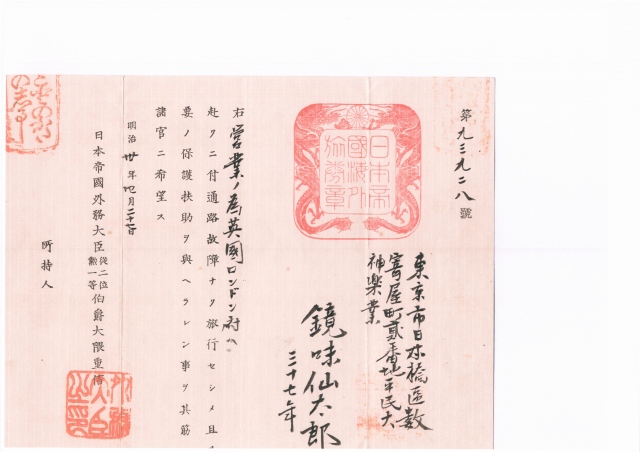 第九三九二八號
日本帝
國海外
旅券章
東京市日本橋區數
寄屋町貳番地平民大
神楽業
鏡味仙太郎
三十七年
右営業ノ為英國ロンドン府ヘ
赴クニ付通路故障ナク旅行セシメ且
要ノ保護扶助ヲ與ヘラレン事ヲ其筋
諸官ニ希望ス
明治卅年四月
日本帝國外務大臣從二位勲一等伯爵大隈重信
外務大臣之印
所持人